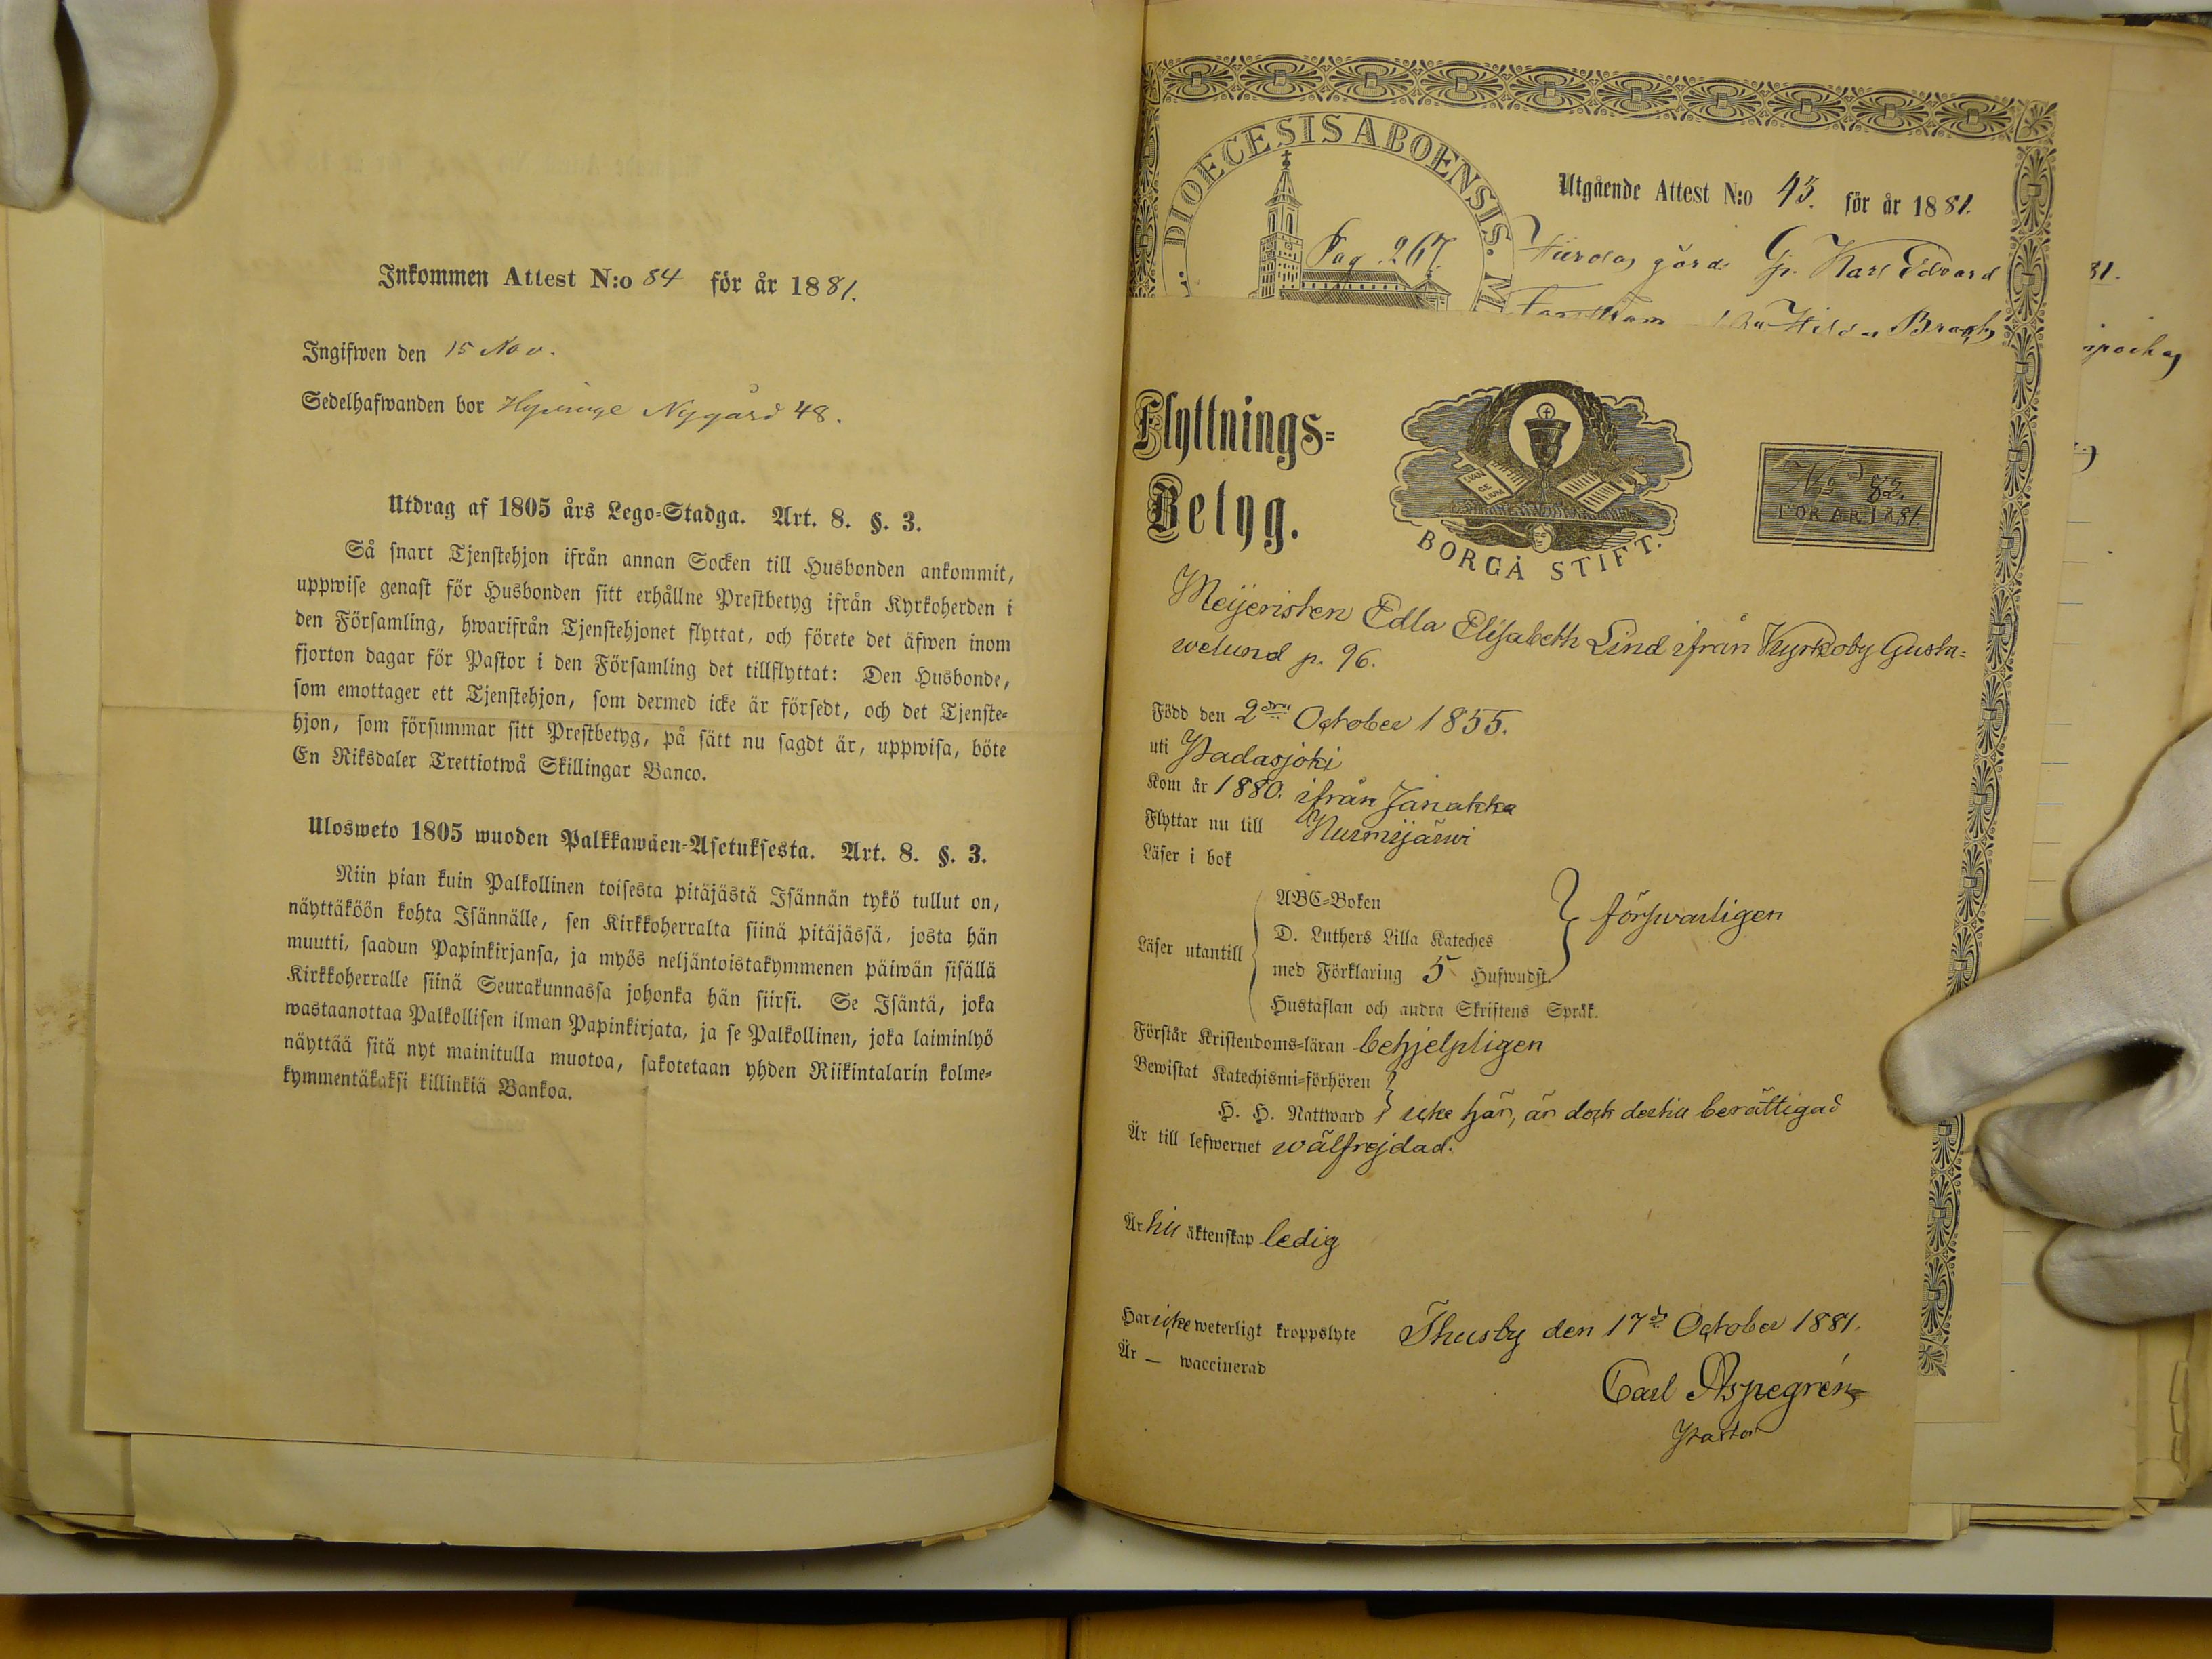 Inkommen Attest N:o 84 för år 1881.
Ingifwen den 15 Nov.
Sedelhafwanden bor Hyvinge Nygård 48.
Utdrag af 1805 års Lego=Stadga. Art. 8. §. 3.
Så snart Tjenstehjon ifrån annan Socken till Husbonden ankommit,
uppwise genast för Husbonden sitt erhållne Prestbetyg ifrån Kyrkoherden i
den Församling, hwarifrån Tjenstehjonet flyttat, och förete det äfwen inom
fjorton dagar för Pastor i den Församling det tillflyttat: Den Husbonde,
som emottager ett Tjenstehjon, som dermed icke är försedt, och det Tjenste=
hjon, som försummar sitt Prestbetyg, på sätt nu sagdt är, uppwisa, böte
En Riksdaler Trettiotwå Skillingar Banco.
Ulosweto 1805 wuoden Palkkawäen=Asetuksesta. Art. 8. §. 3.
Niin pian kuin Palkollinen toisesta pitäjästä Isännän tykö tullut on,
näyttäköön kohta Isännälle, sen Kirkkoherralta siinä pitäjässä, josta hän
muutti, saadun Papinkirjansa, ja myös neljäntoistakymmenen päiwän sisällä
Kirkkoherralle siinä Seurakunnassa johonka hän siirsi. Se Isäntä, joka
wastaanottaa Palkollisen ilman Papinkirjata, ja se Palkollinen, joka laiminlyö
näyttää sitä nyt mainitulla muotoa, sakotetaan yhden Riikintalarin kolme=
kymmentäkaksi killinkiä Bankoa.
DIOECESIS ABOENSIS. M
Utgående Attest N:o 43. för år 1881.
Pag. 267.
gård Karl Edvard
Hilda
Flyttnings=
Betyg.
EVAN
GE
LIUM
BORGÅ STIFT.
No 82.
FÖR ÅR 1881
Meijeristen Edla Elisabeth Lind ifrån Kyrkoby Gusta=
welund p. 96.
Född den 2dra October 1855.
uti Padasjoki
Kom år 1880. ifrån Janakka
Flyttar nu till Nurmijärwi
Läser i bok
Läser utantill
ABC=Boken
D. Luthers Lilla Kateches
med Förklaring 5 Hufwudst.
Hustaflan och andra Skriftens Språk.
förswarligen
Förstår Kristendoms=läran behjelpligen
Bewistat Katechismi=förhören
H. H. Nattward icke här, är dock dertill berättigad
Är till lefwernet wälfrejdad.
Är till äktenskap ledig
Har icke weterligt kroppslyte
Är — waccinerad
Thusby den 17de October 1881.
Carl Aspegrén
Pastor